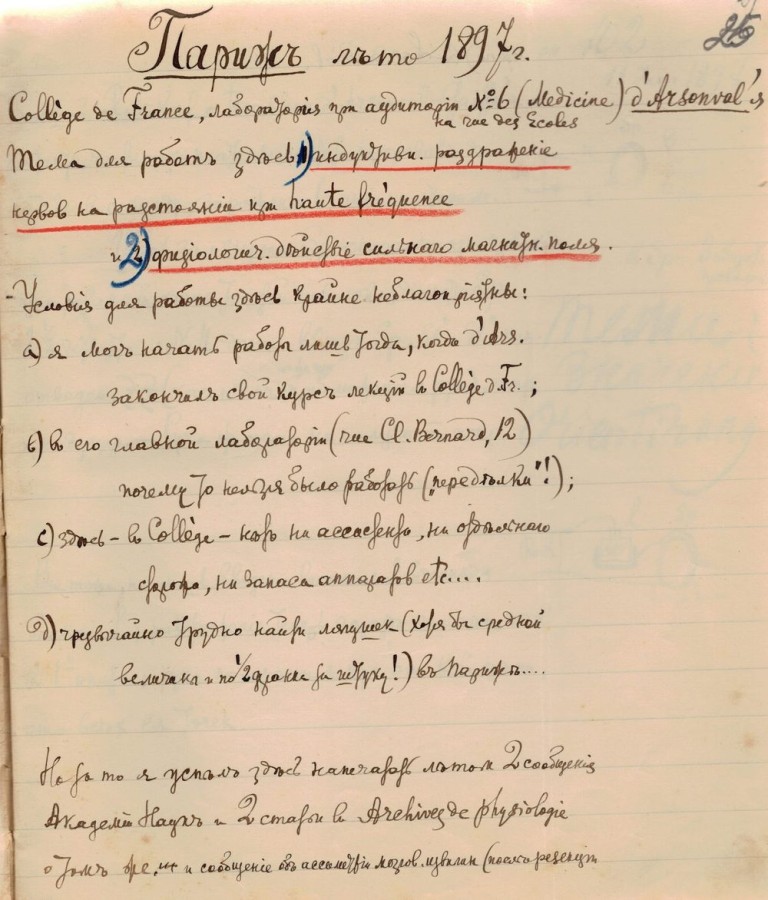 25
Парижъ лѣто 1897 г.
Collège de France, лабораторія при аудиторіи № 6 (Medicine) d'Arsonval'я
на rue des Ecoles
Тема для работъ здѣсь 1) индуктивн. раздраженіе
нервовъ на разстояніи при haute fréquence
и 2) физіологич. дѣйствіе сильнаго магнитн. поля.
- Условія для работы здѣсь крайне неблагопріятны:
a) я могъ начать работы лишь тогда, когда d'Ars.
закончилъ свой курсъ лекцій въ Collège d. Fr.;
b) въ его главной лабораторіи (rue Cl. Bernard, 12)
почему то нельзя было работать („передѣлки"!);
c) здѣсь – въ Collège – нѣтъ ни ассистента, ни отдѣльнаго
стола, ни запаса аппаратовъ etc....
d) чрезвычайно трудно найти лягушекъ (хотя бы средной
величины и по 1/2 франка за штуку!) въ Парижѣ....
Но то я успѣлъ здѣсь напечатать лѣтомъ 2 сообщенія
Академіи Наукъ и 2 статьи въ Archives de physiologie
о томъ же, и сообщеніе объ ассиметріи мозгов. извилин (послѣ рецензіи